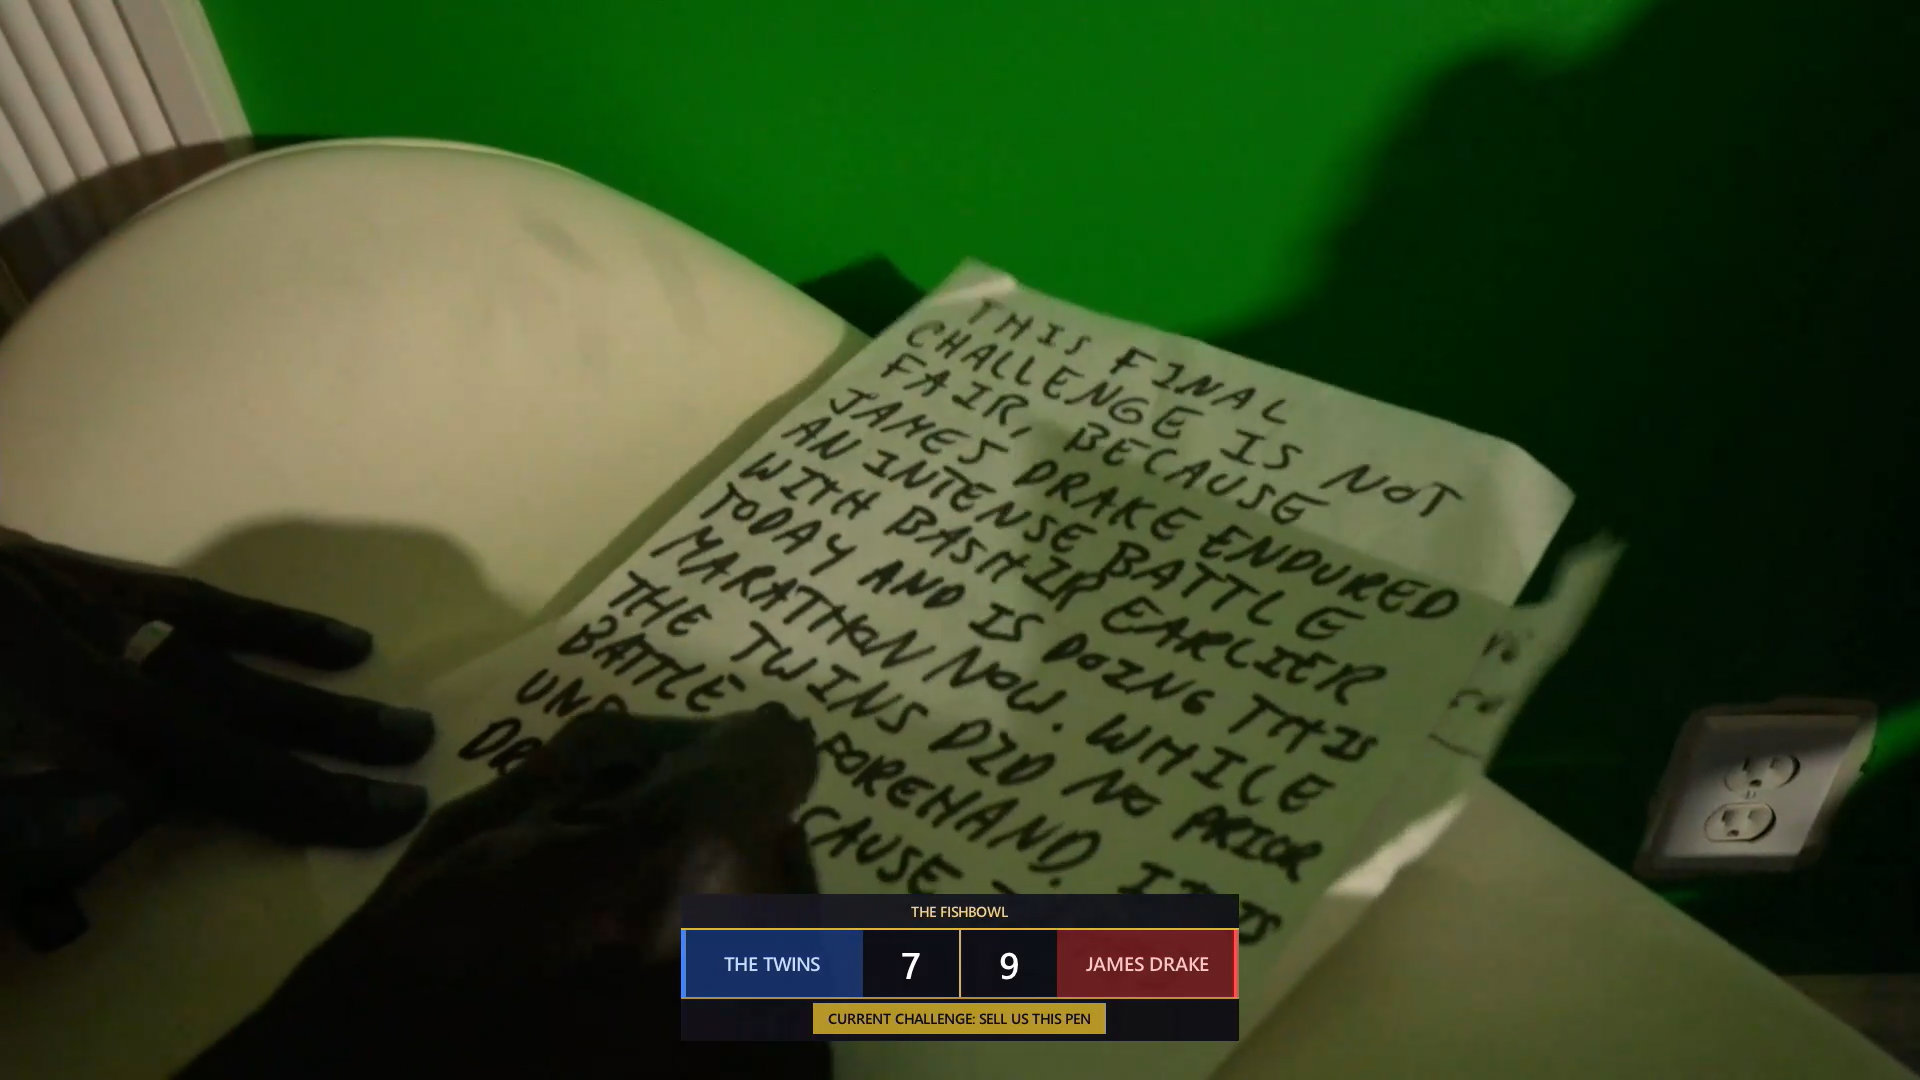 THIS FINAL
CHALLENGE IS NOT
FAIR, BECAUSE
JAMES DRAKE ENDURED
AN INTENSE BATTLE
WITH BASHIR EARLIER
TODAY AND IS DOING THIS
MARATHON NOW. WHILE
THE TWINS DID NO PRIOR
BATTLE FOREHAND. IT IS
THE FISHBOWL
THE TWINS 7 9 JAMES DRAKE
CURRENT CHALLENGE: SELL US THIS PEN